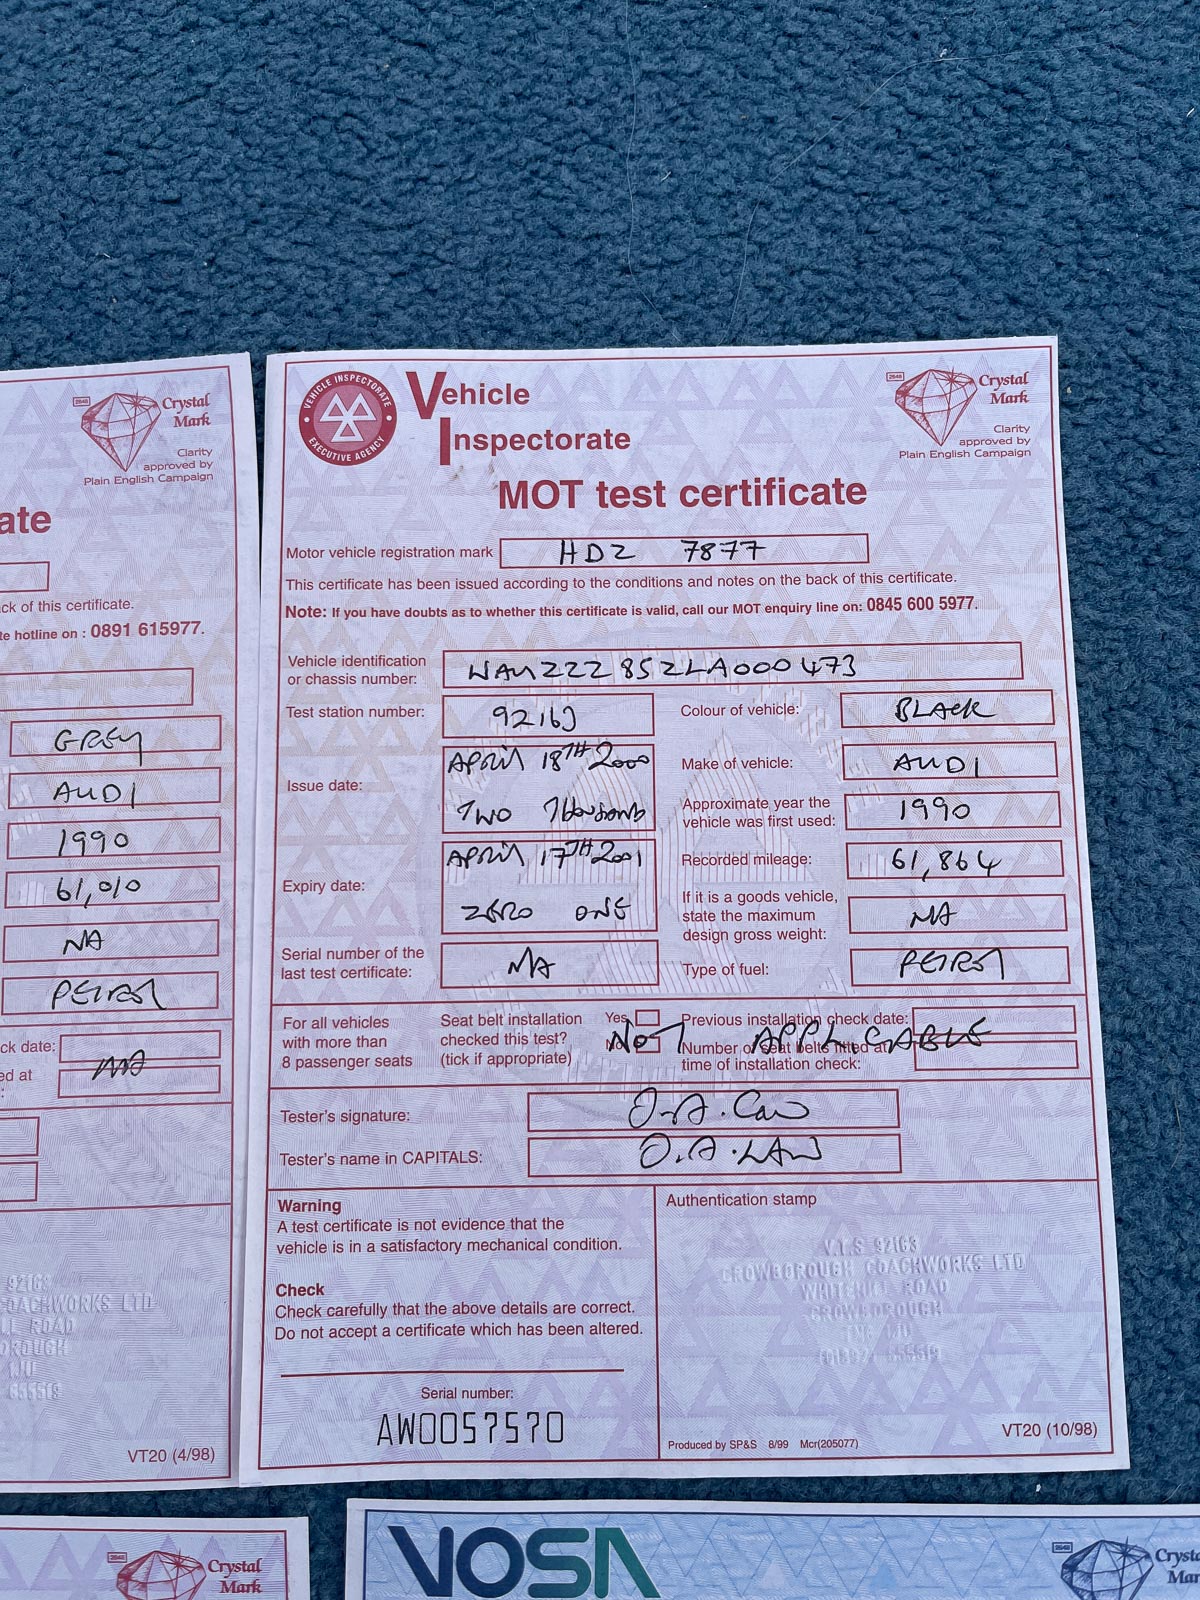 2648
Crystal
Mark
Clarity
approved by
Plain English Campaign
ate
ck of this certificate.
te hotline on : 0891 615977.
GREY
AUDI
1990
61,010
NA
PETROL
ck date:
NA
ed at
:
92163
COACHWORKS LTD
LL ROAD
OROUGH
1JU
655519
VT20 (4/98)
VEHICLE INSPECTORATE
EXECUTIVE AGENCY
Vehicle
Inspectorate
2648
Crystal
Mark
Clarity
approved by
Plain English Campaign
MOT test certificate
Motor vehicle registration mark HDZ 7877
This certificate has been issued according to the conditions and notes on the back of this certificate.
Note: If you have doubts as to whether this certificate is valid, call our MOT enquiry line on: 0845 600 5977.
Vehicle identification
or chassis number: WAUZZZ85ZLA000473
Test station number: 92163
Colour of vehicle: BLACK
Issue date: APRIL 18TH 2000
TWO THOUSAND
Make of vehicle: AUDI
Approximate year the
vehicle was first used: 1990
Expiry date: APRIL 17TH 2001
ZERO ONE
Recorded mileage: 61,864
If it is a goods vehicle,
state the maximum
design gross weight: NA
Serial number of the
last test certificate: NA
Type of fuel: PETROL
For all vehicles
with more than
8 passenger seats
Seat belt installation
checked this test?
(tick if appropriate)
Yes
NOT APPLICABLE
Previous installation check date:
Number of seat belts fitted at
time of installation check:
Tester's signature:
Tester's name in CAPITALS: O.A.LAW
Warning
A test certificate is not evidence that the
vehicle is in a satisfactory mechanical condition.
Check
Check carefully that the above details are correct.
Do not accept a certificate which has been altered.
Serial number:
AW0057570
Authentication stamp
V.T.S 92163
CROWBOROUGH COACHWORKS LTD
WHITEHILL ROAD
CROWBOROUGH
TN6 1JU
(01892) 655519
Produced by SP&S 8/99 Mcr(205077)
VT20 (10/98)
2648
Crystal
Mark
VOSA
2648
Crysta
Mar